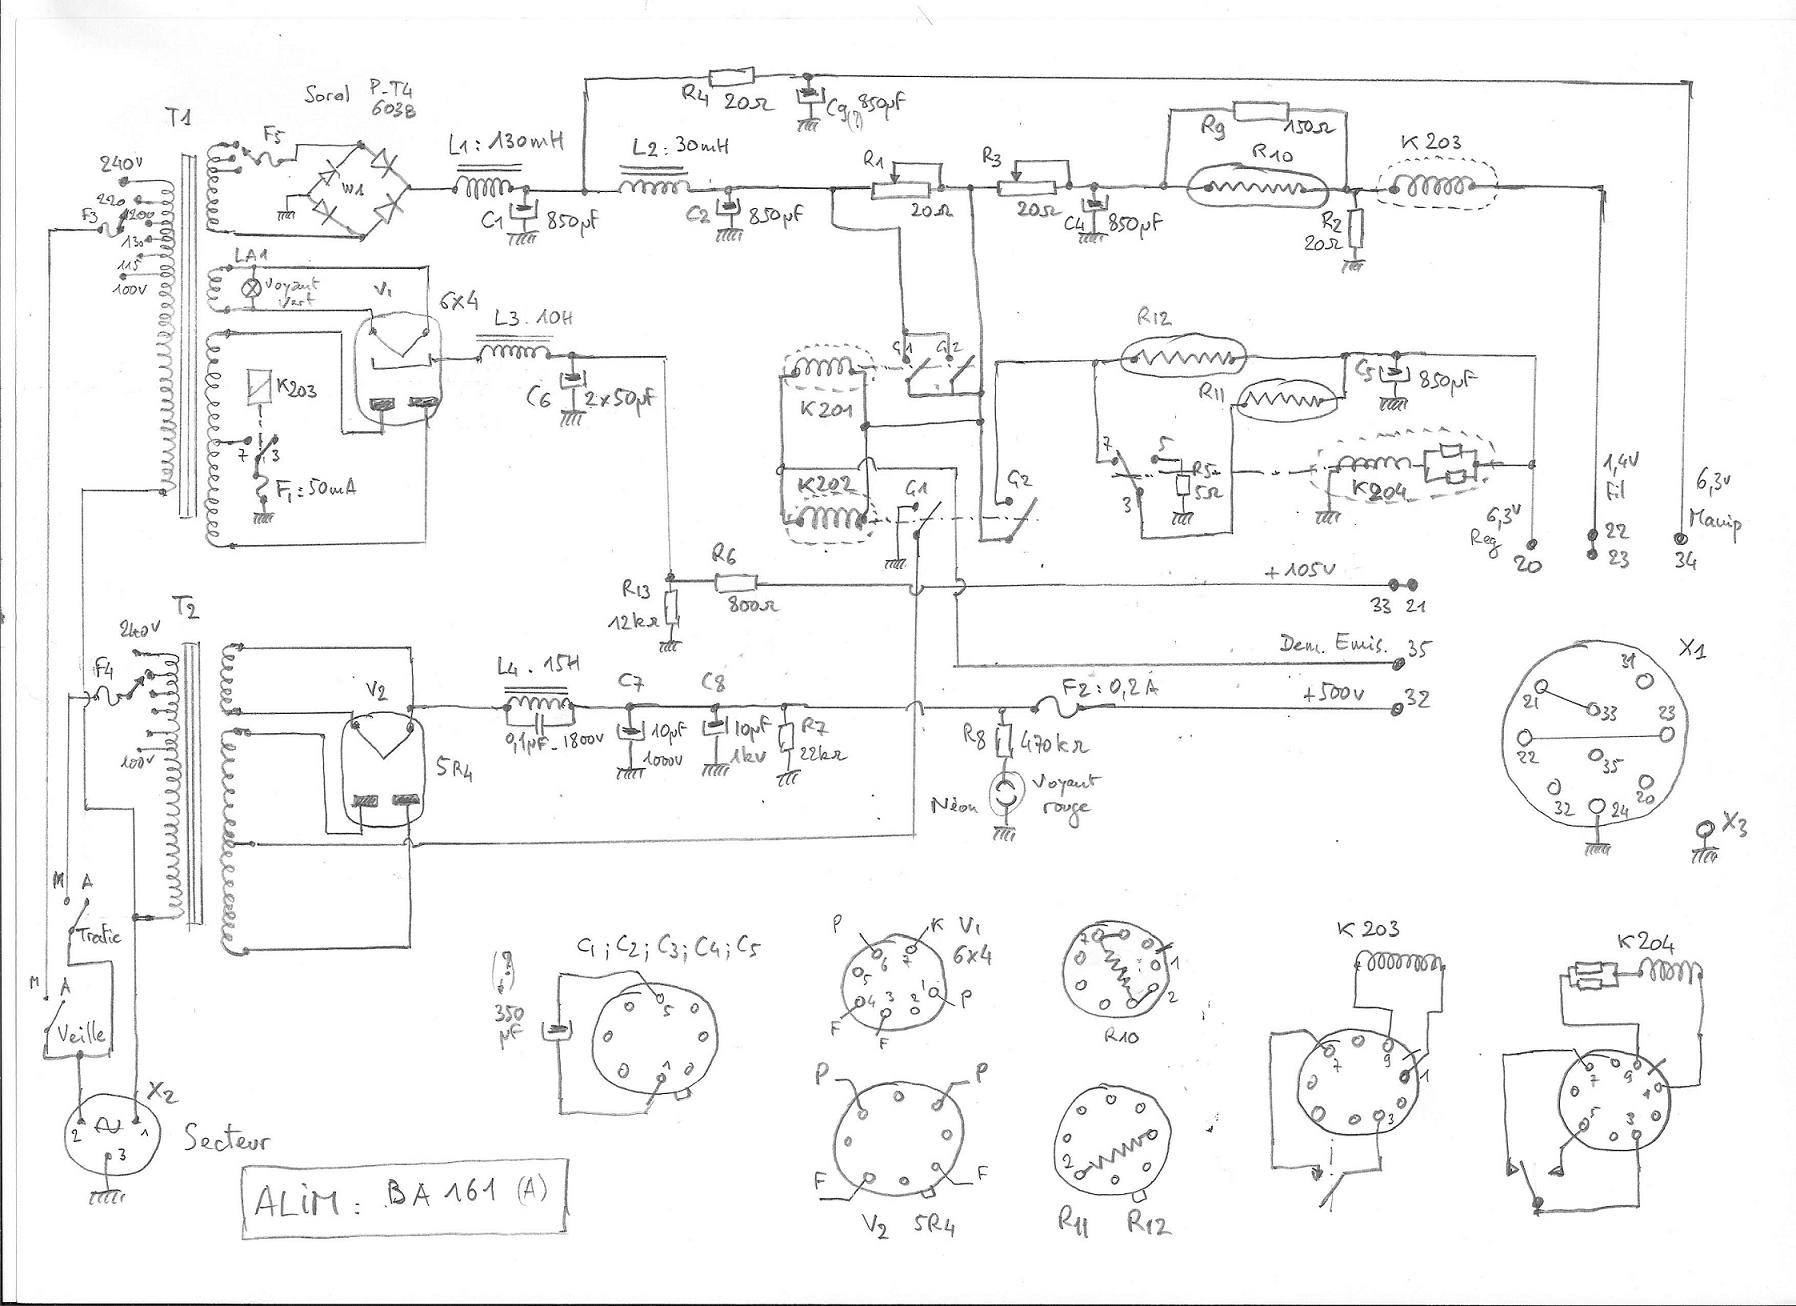 Soral P-T4
603B
T1
F5
240V
220
200
130
115
100V
F3
W1
L1 : 130mH
C1
850µF
L2 : 30mH
C2
850µF
R4
20Ω
C9(?)
850µF
R1
20Ω
R3
20Ω
C4
850µF
R9
150Ω
R10
K203
R2
20Ω
LA1
Voyant
Vert
V1
6X4
L3 . 10H
C6
2x50µF
K203
7
3
F1 = 50mA
K201
G1
G2
K202
G1
G2
R12
R11
C5
850µF
7
5
3
R5
5Ω
K204
6,3V
Reg
20
1,4V
Fil
22
23
6,3V
Manip
34
R6
800Ω
R13
12kΩ
+105V
33
21
T2
240V
F4
100V
V2
5R4
L4 . 15H
0,1µF_1800V
C7
10µF
1000V
C8
10µF
1kV
R7
22kΩ
Dem. Emis.
35
F2 : 0,2A
+500V
32
R8
470kΩ
Néon
Voyant
rouge
X1
31
21
33
23
22
35
32
24
20
X3
M
A
Trafic
M
A
Veille
X2
2
1
3
Secteur
ALIM : BA 161 (A)
(?)
350
µF
C1 ; C2 ; C3 ; C4 ; C5
5
1
P
K
V1
6X4
6
7
5
4
3
2
1
P
F
F
P
P
F
F
V2
5R4
7
1
2
R10
2
R11
R12
K203
7
9
1
3
K204
7
9
1
5
3